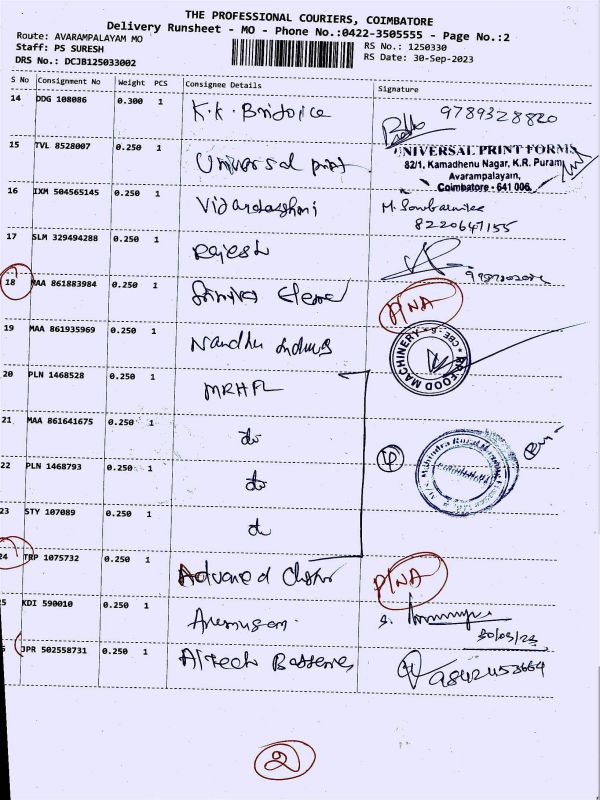 THE PROFESSIONAL COURIERS, COIMBATORE
Delivery Runsheet - MO - Phone No.:0422-3505555 - Page No.:2
Route: AVARAMPALAYAM MO
RS No.: 1250330
Staff: PS SURESH
RS Date: 30-Sep-2023
DRS No.: DCJB125033002
S No Consignment No Weight PCS Consignee Details Signature
14 DDG 108086 0.300 1 K.K.
9789328820
15 TVL 8528007 0.250 1 Universal print
UNIVERSAL PRINT FORMS
82/1, Kamadhenu Nagar, K.R. Puram,
Avarampalayam,
Coimbatore - 641 006.
16 IXM 504565145 0.250 1
M.
8220647155
17 SLM 329494288 0.250 1 Rajesh
18 MAA 861883984 0.250 1
P/NA
19 MAA 861935969 0.250 1 Nandhu
FOOD MACHINERY
CBE-6
20 PLN 1468528 0.250 1 MRHFL
21 MAA 861641675 0.250 1 do
22 PLN 1468793 0.250 1 do
23 STY 107089 0.250 1 do
24 TRP 1075732 0.250 1 Advanced
P/NA
25 KDI 590010 0.250 1
S.
30/09/23
JPR 502558731 0.250 1 Altech Batteries
2